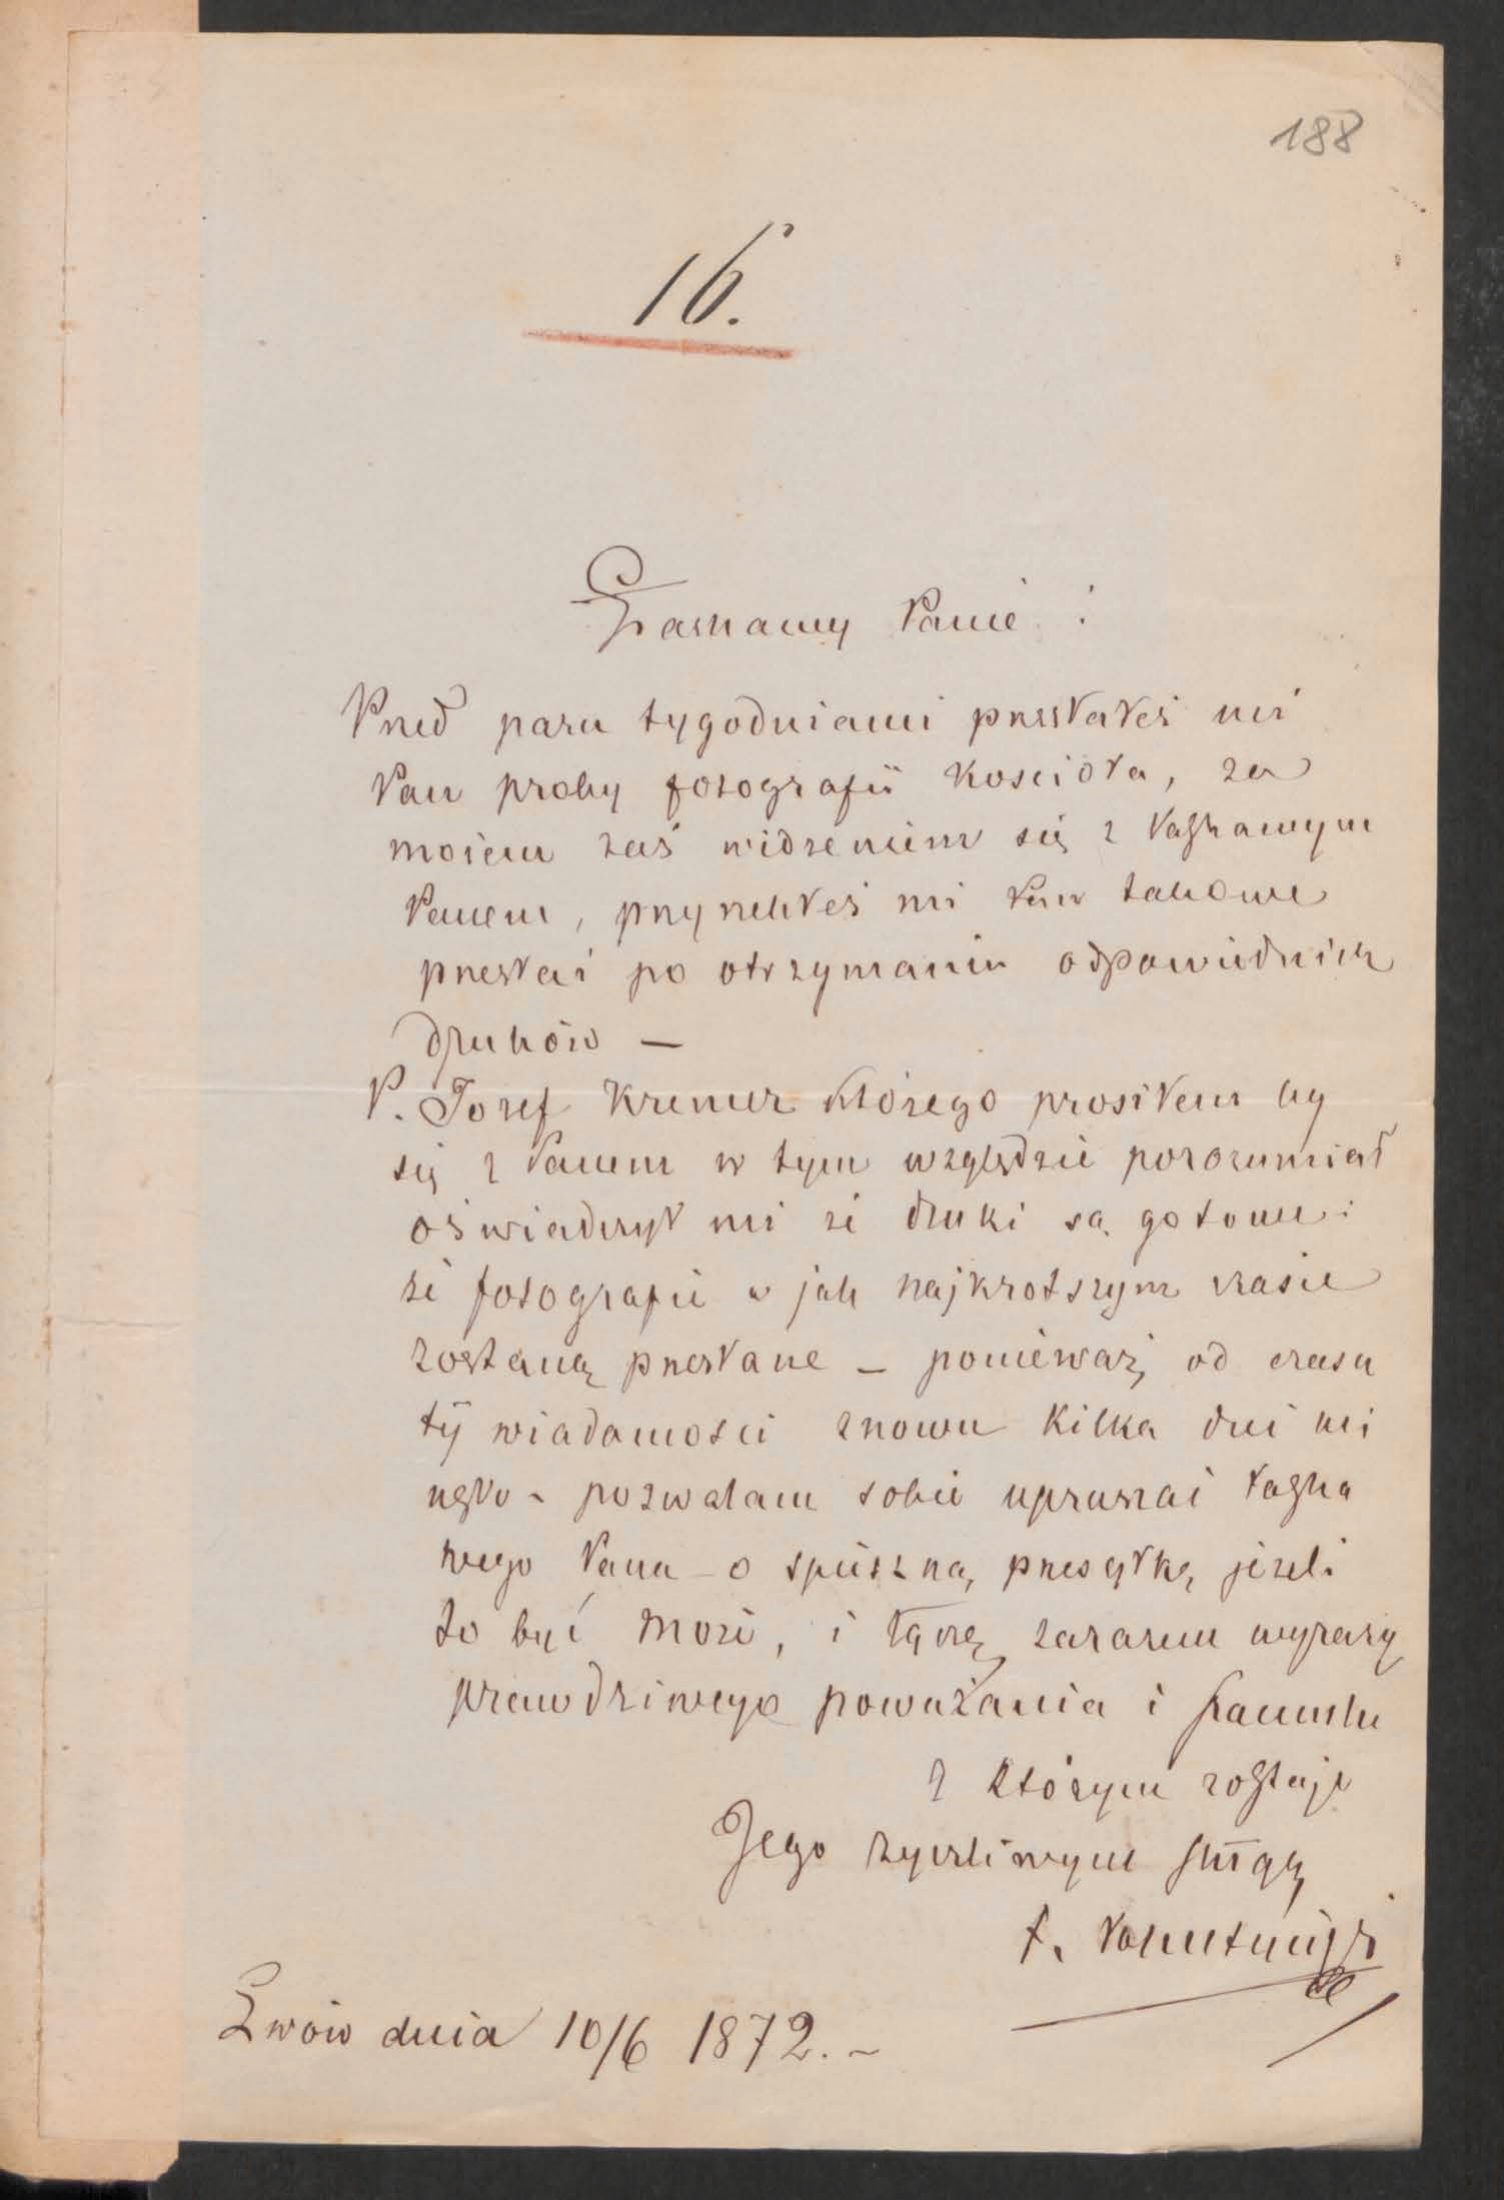 188
16.
Łaskawy Panie!
Przed paru tygodniami przesłałeś mi
Pan proby fotografii Kosciola, za
mojem zaś widzeniem się z Łaskawym
Panem, przyrzekłeś mi Pan takowe
przesłać po otrzymaniu odpowiednich
druków —
P. Jozef Kremer którego prosiłem by
się z Panem w tym względzie porozumiał
oświadczył mi że druki są gotowe i
że fotografie w jak najkrotszym czasie
zostaną przesłane — ponieważ od czasu
tÿ wiadomosci znowu Kilka dni mi
nęło - pozwalam sobie upraszać Łaska
wego Pana o spieszną przesyłkę jeżeli
to być może, i łączę zarazem wyrazy
prawdziwego poważania i szacunku
z którym zostaję
Jego życzliwym sługą
Lwów dnia 10/6 1872. ~